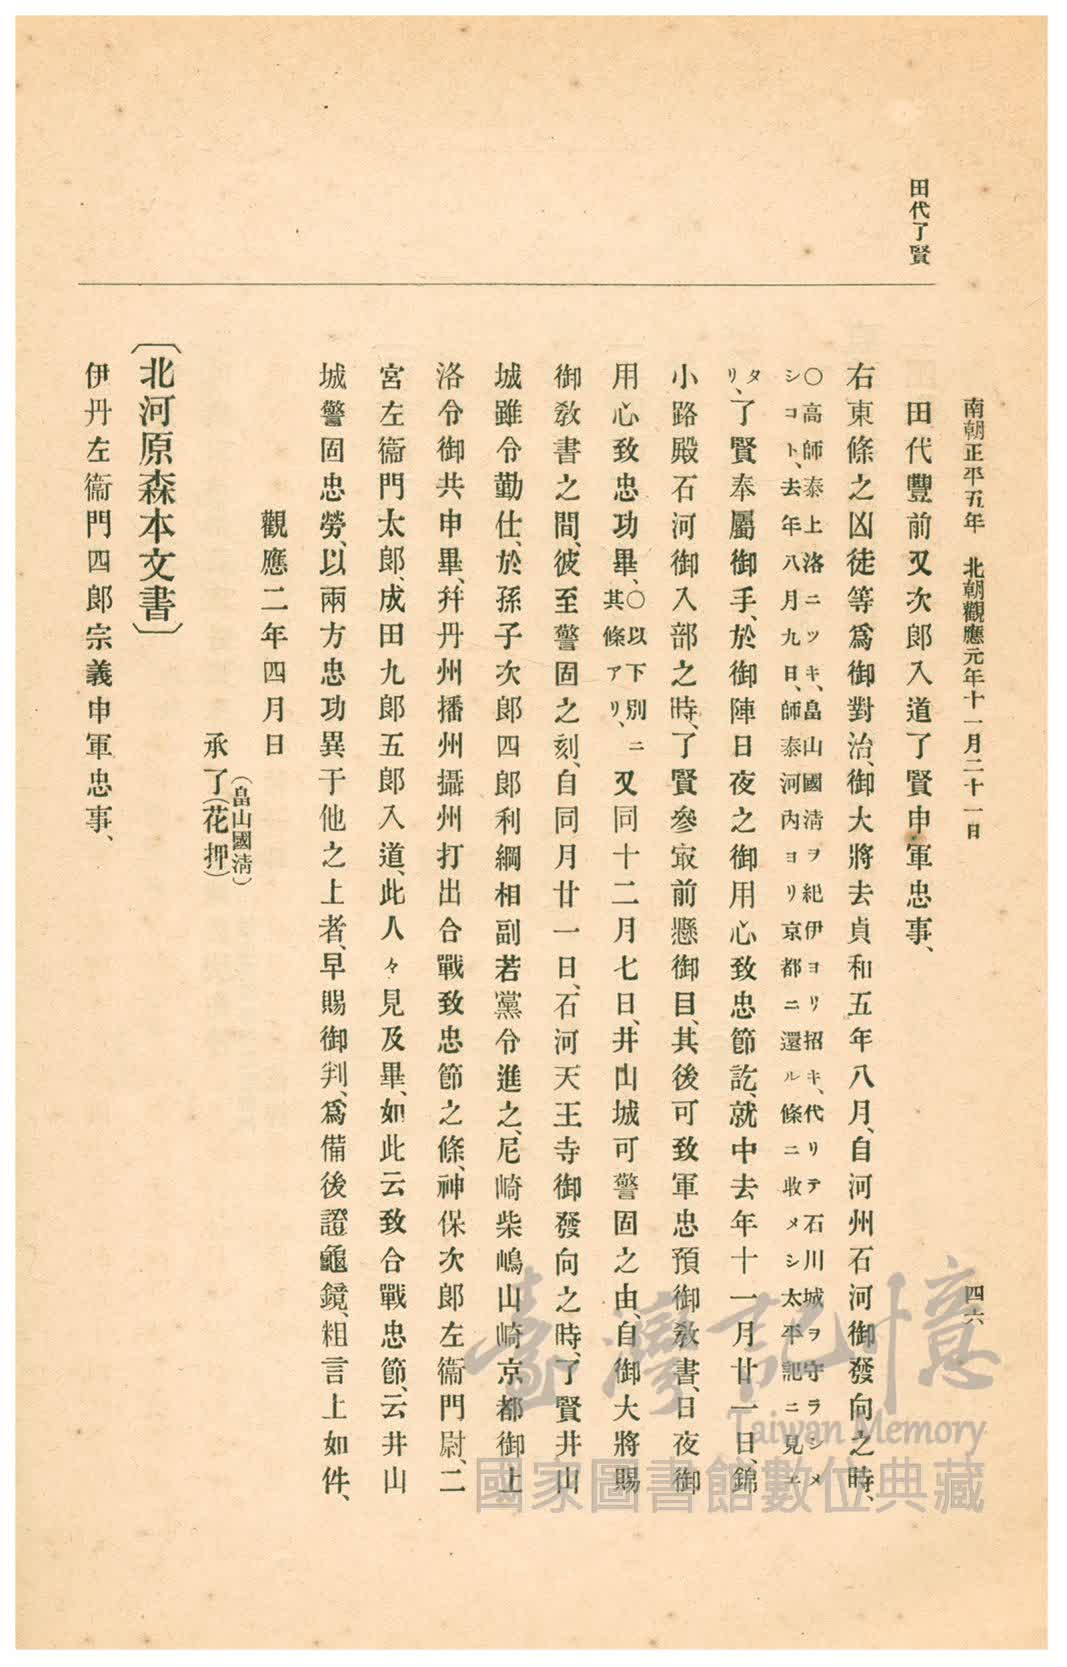 南朝正平五年　北朝觀應元年十一月二十一日
四六
田代了賢
田代豐前又次郎入道了賢申軍忠事、
右東條之凶徒等爲御對治、御大將去貞和五年八月、自河州石河御發向之時、
○高師泰上洛ニツキ、畠山國清ヲ紀伊ヨリ招キ、代リテ石川城ヲ守ラシメ
シコト、去年八月九日、師泰河內ヨリ京都ニ還ル條ニ收メシ太平記ニ見エ
タ
リ、
了賢奉屬御手、於御陣日夜之御用心致忠節訖、就中去年十一月廿一日、錦
小路殿石河御入部之時、了賢參㝡前懸御目、其後可致軍忠預御敎書、日夜御
用心致忠功畢、
○以下別ニ
其條アリ、
又同十二月七日、井山城可警固之由、自御大將賜
御敎書之間、彼至警固之刻、自同月廿一日、石河天王寺御發向之時、了賢井山
城雖令勤仕、於孫子次郎四郎利綱相副若黨令進之、尼崎柴嶋山崎京都御上
洛令御共申畢、幷丹州播州攝州打出合戰致忠節之條、神保次郎左衞門尉、二
宮左衞門太郎、成田九郎五郎入道、此人々見及畢、如此云致合戰忠節、云井山
城警固忠勞、以兩方忠功異于他之上者、早賜御判、爲備後證龜鏡、粗言上如件、
觀應二年四月日
（畠山國淸）
承了（花押）
〔北河原森本文書〕
伊丹左衞門四郎宗義申軍忠事、
臺灣記憶
Taiwan Memory
國家圖書館數位典藏